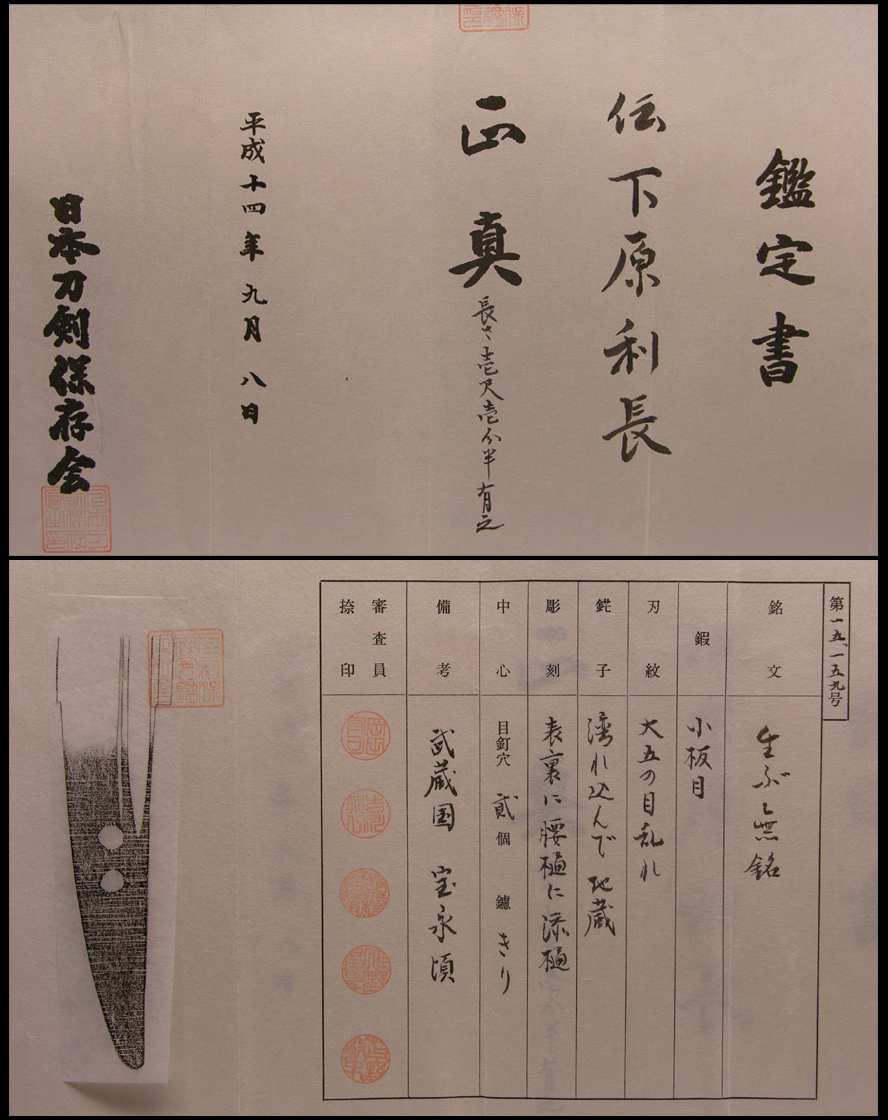 鑑定書
伝下原利長
正真 長さ壱尺壱分半有之
平成十四年九月八日
日本刀剣保存会
第一五、一五九号
銘文 生ぶ無銘
鍜 小板目
刃紋 大五の目乱れ
鋩子 湾れ込んで地蔵
彫刻 表裏に腰樋に添樋
中心 目釘穴 貳個 鑢 きり
備考 武蔵国 宝永頃
審査員
捺印